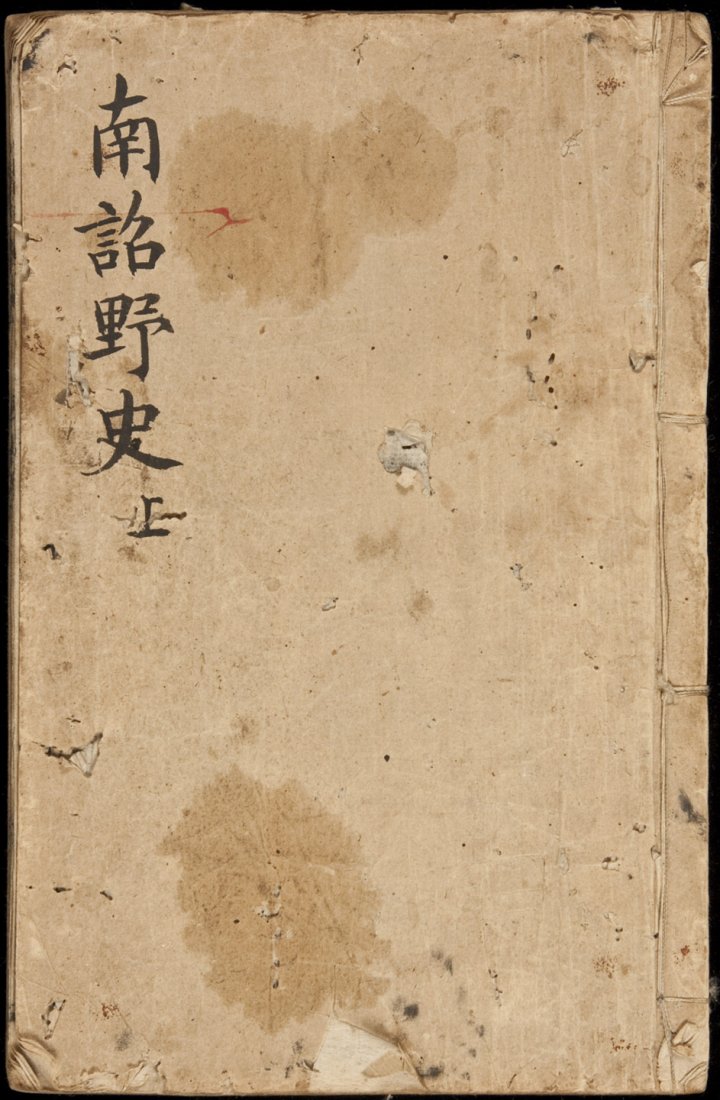 南詔野史上